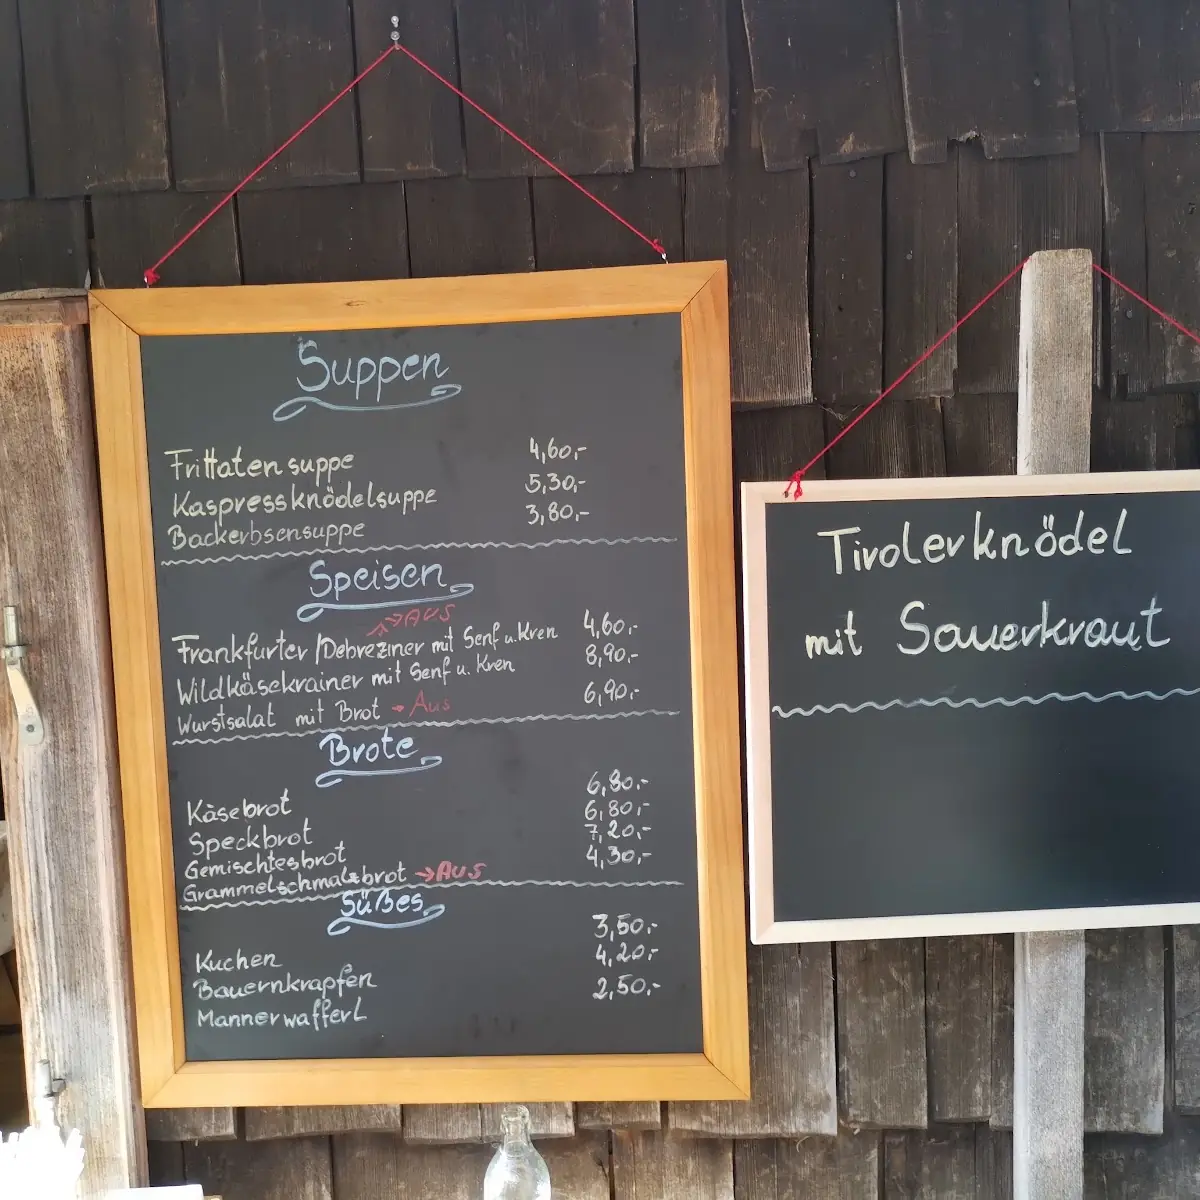 Suppen
Frittatensuppe 4,60,-
Kaspressknödelsuppe 5,30,-
Backerbsensuppe 3,80,-
Speisen
→AUS
Frankfurter/Debreziner mit Senf u. Kren 4,60,-
Wildkäsekrainer mit Senf u. Kren 8,90,-
Wurstsalat mit Brot → Aus 6,90,-
Brote
Käsebrot 6,80,-
Speckbrot 6,80,-
Gemischtesbrot 7,20,-
Grammelschmalzbrot →AUS 4,30,-
Süßes
Kuchen 3,50,-
Bauernkrapfen 4,20,-
Mannerwafferl 2,50,-
Tirolerknödel
mit Sauerkraut